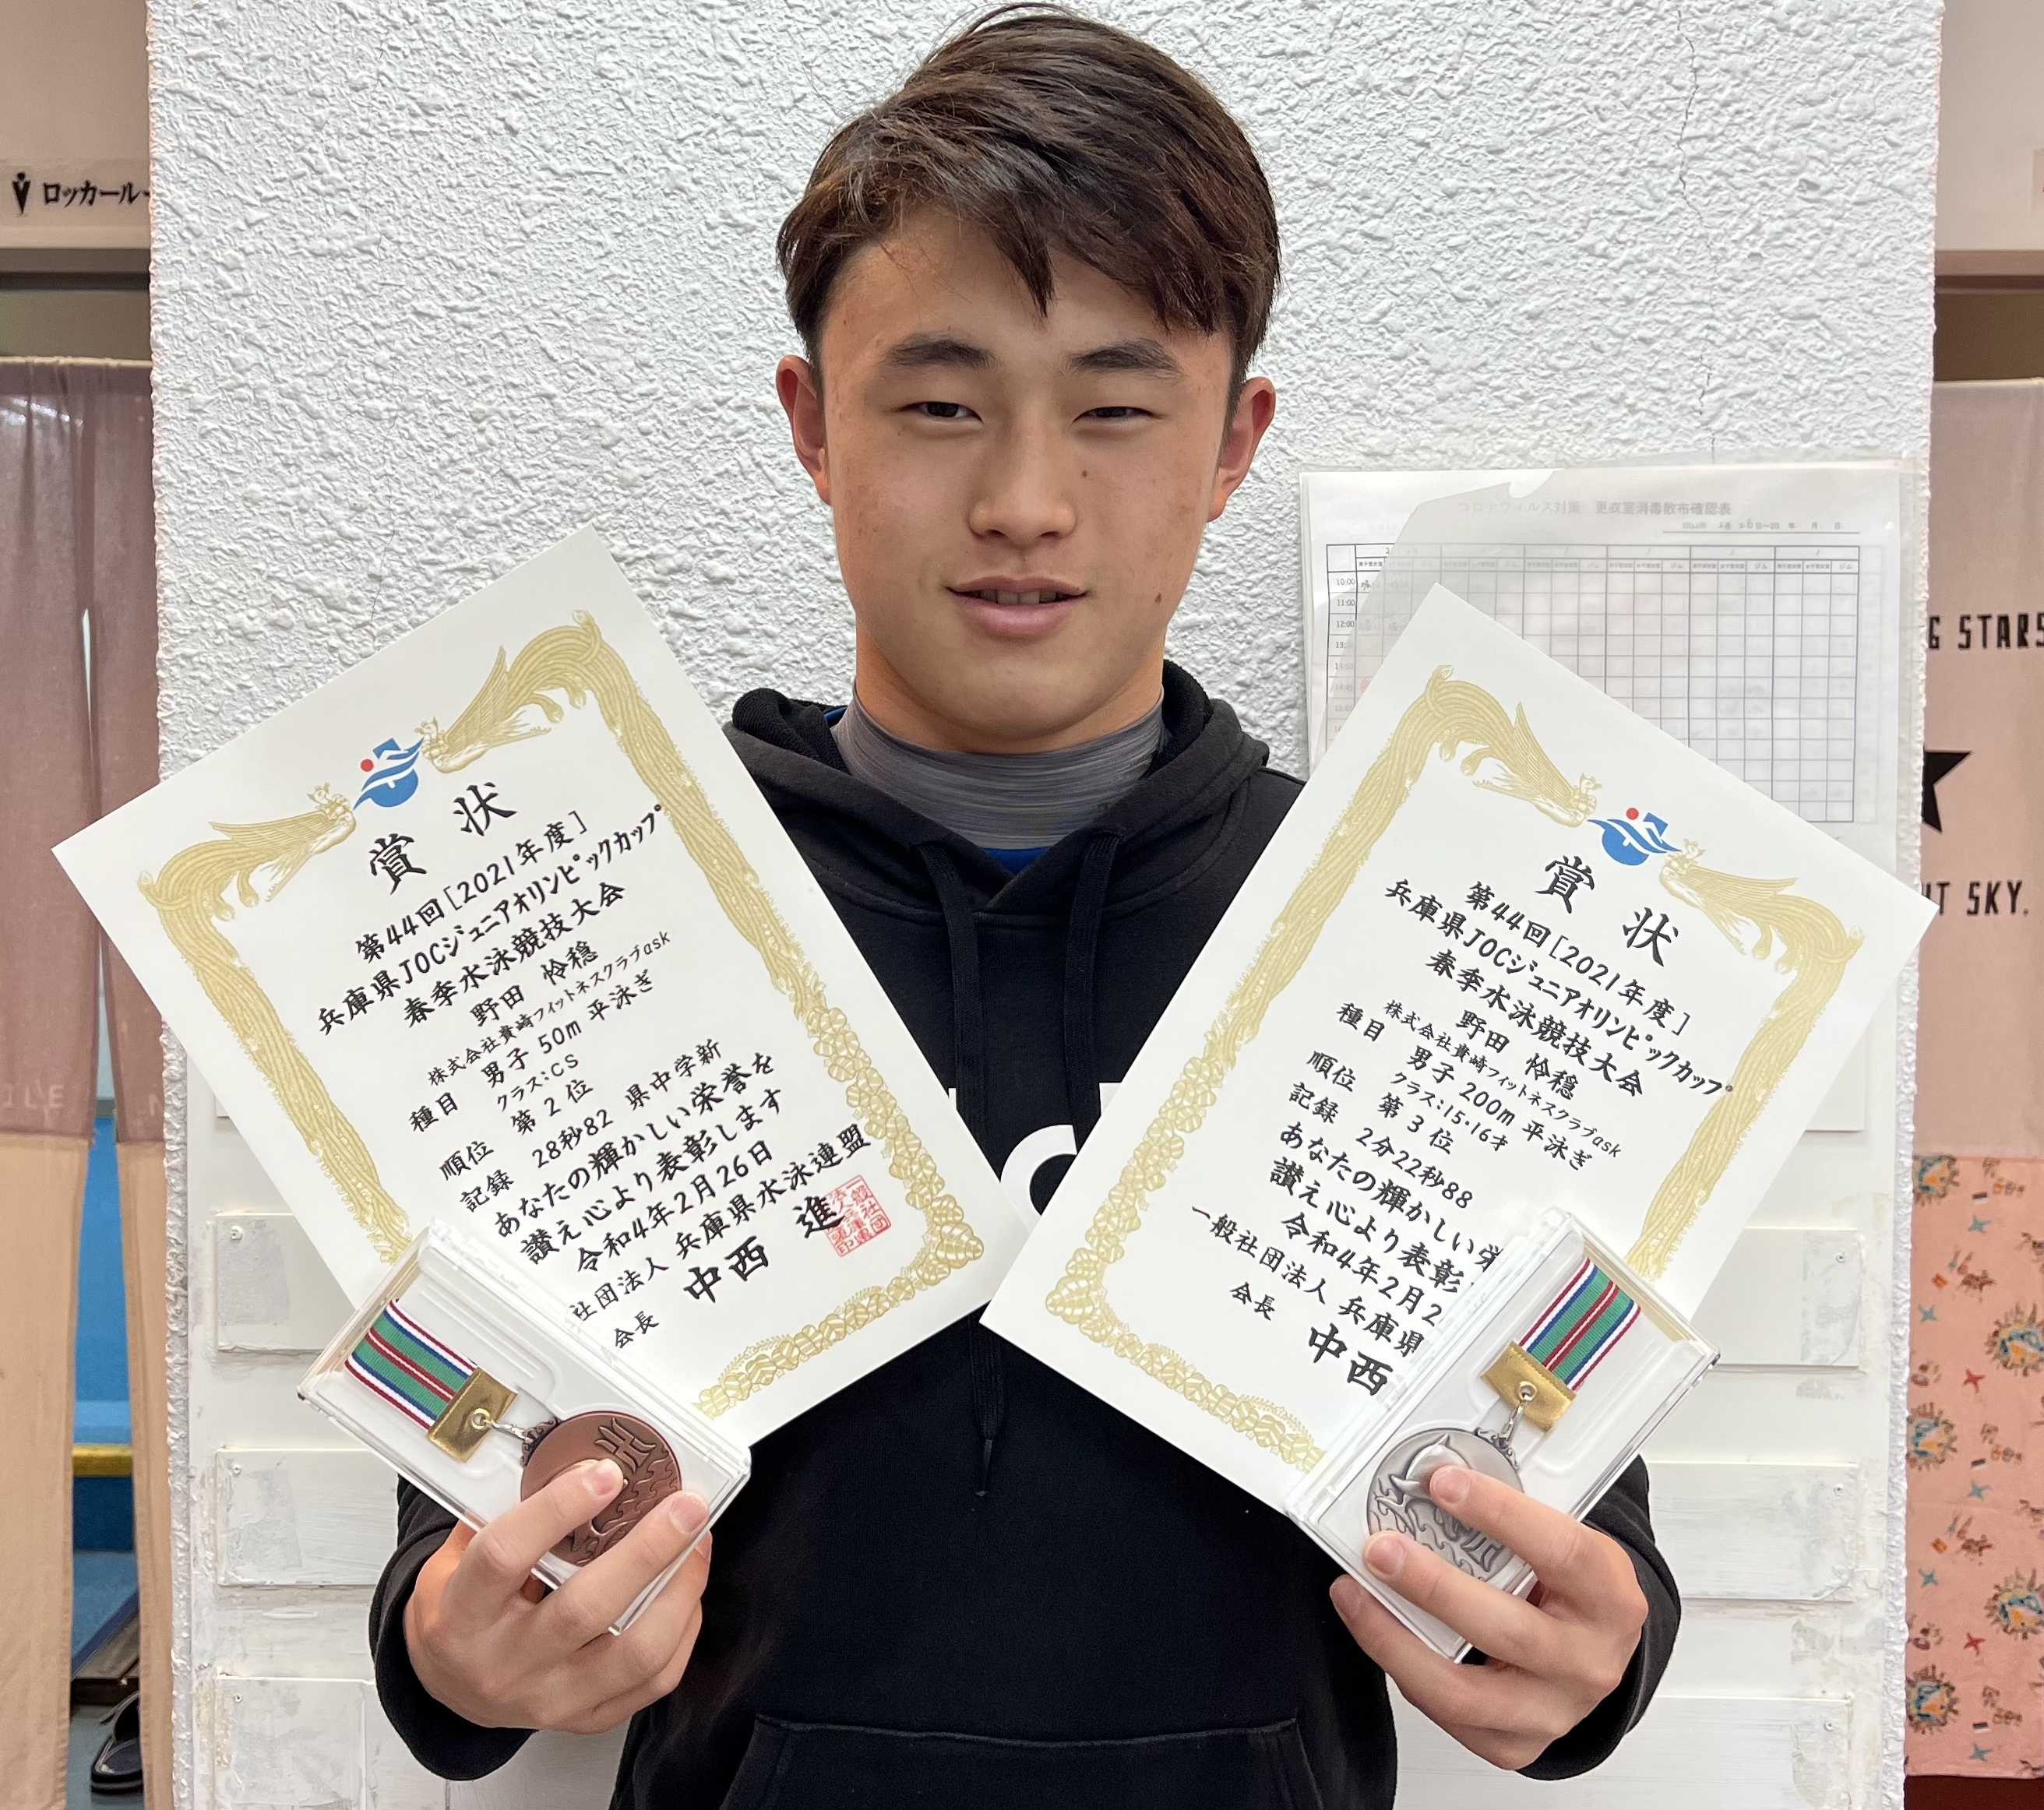 ロッカール
コロナウィルス対策 更衣室消毒散布確認表
10:00
11:00
12:00
G STARS
T SKY.
賞状
第44回[2021年度]
兵庫県JOCジュニアオリンピックカップ
春季水泳競技大会
野田 怜穏
株式会社貴崎フィットネスクラブask
種目 男子 50m 平泳ぎ
クラス:CS
順位 第 2 位
記録 28秒82 県中学新
あなたの輝かしい栄誉を
讃え心より表彰します
令和4年2月26日
社団法人 兵庫県水泳連盟
会長 中西 進
賞状
第44回[2021年度]
兵庫県JOCジュニアオリンピックカップ
春季水泳競技大会
野田 怜穏
株式会社貴崎フィットネスクラブask
種目 男子 200m 平泳ぎ
クラス:15・16才
順位 第 3 位
記録 2分22秒88
あなたの輝かしい栄
讃え心より表彰
令和4年2月2
一般社団法人 兵庫県
会長 中西
ILE